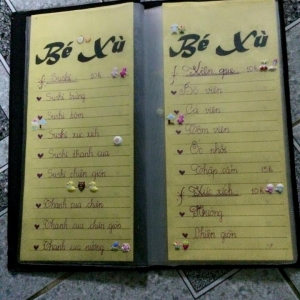 Bé Xù
Sushi 10k
Sushi trứng
Sushi tôm
Sushi xúc xích
Sushi thanh cua
Sushi chiên giòn
Thanh cua chiên
Thanh cua chiên giòn
Thanh cua nướng
Bé Xù
Xiên que
Bò viên
Cá viên
Tôm viên
Ốc nhồi
Thập cẩm 15k
Xúc xích 10k
Nướng
Chiên giòn